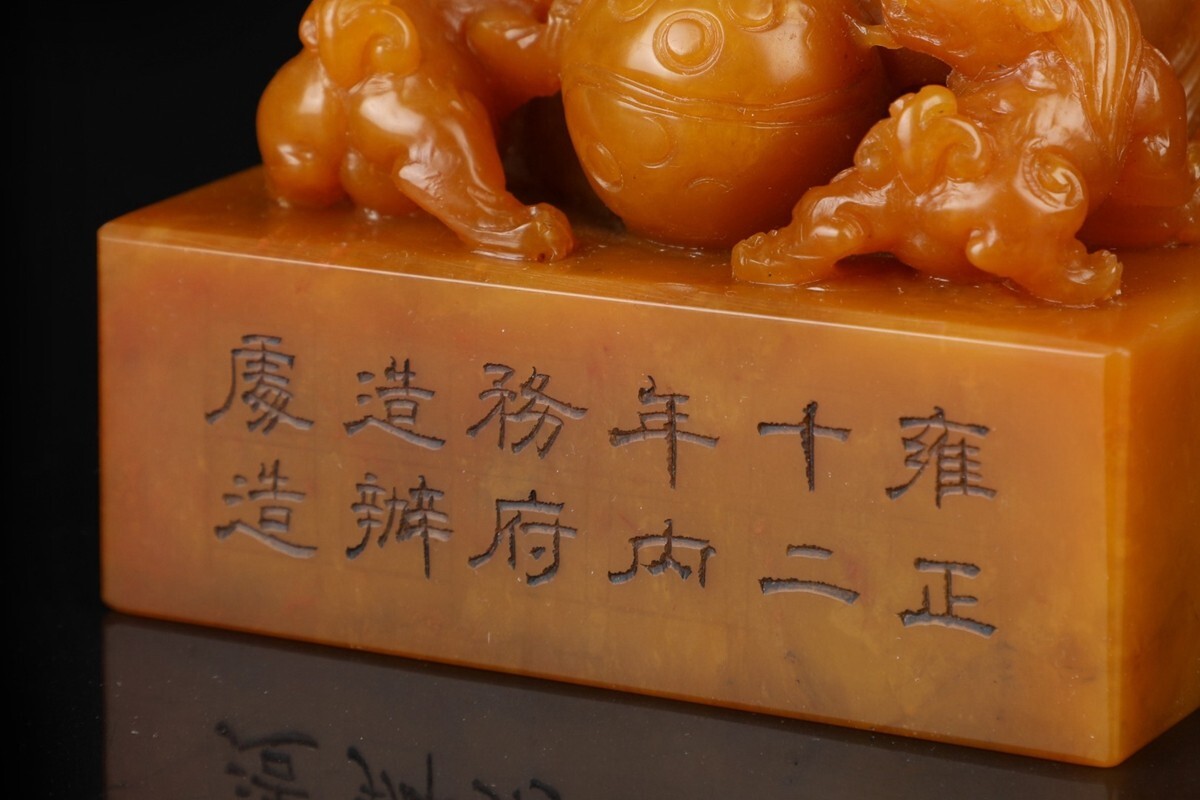 雍正
十二
年内
務府
造辦
處造